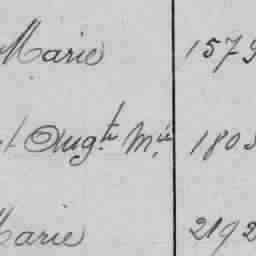 Marie 1579
Augte Mie 1805
Marie 2192